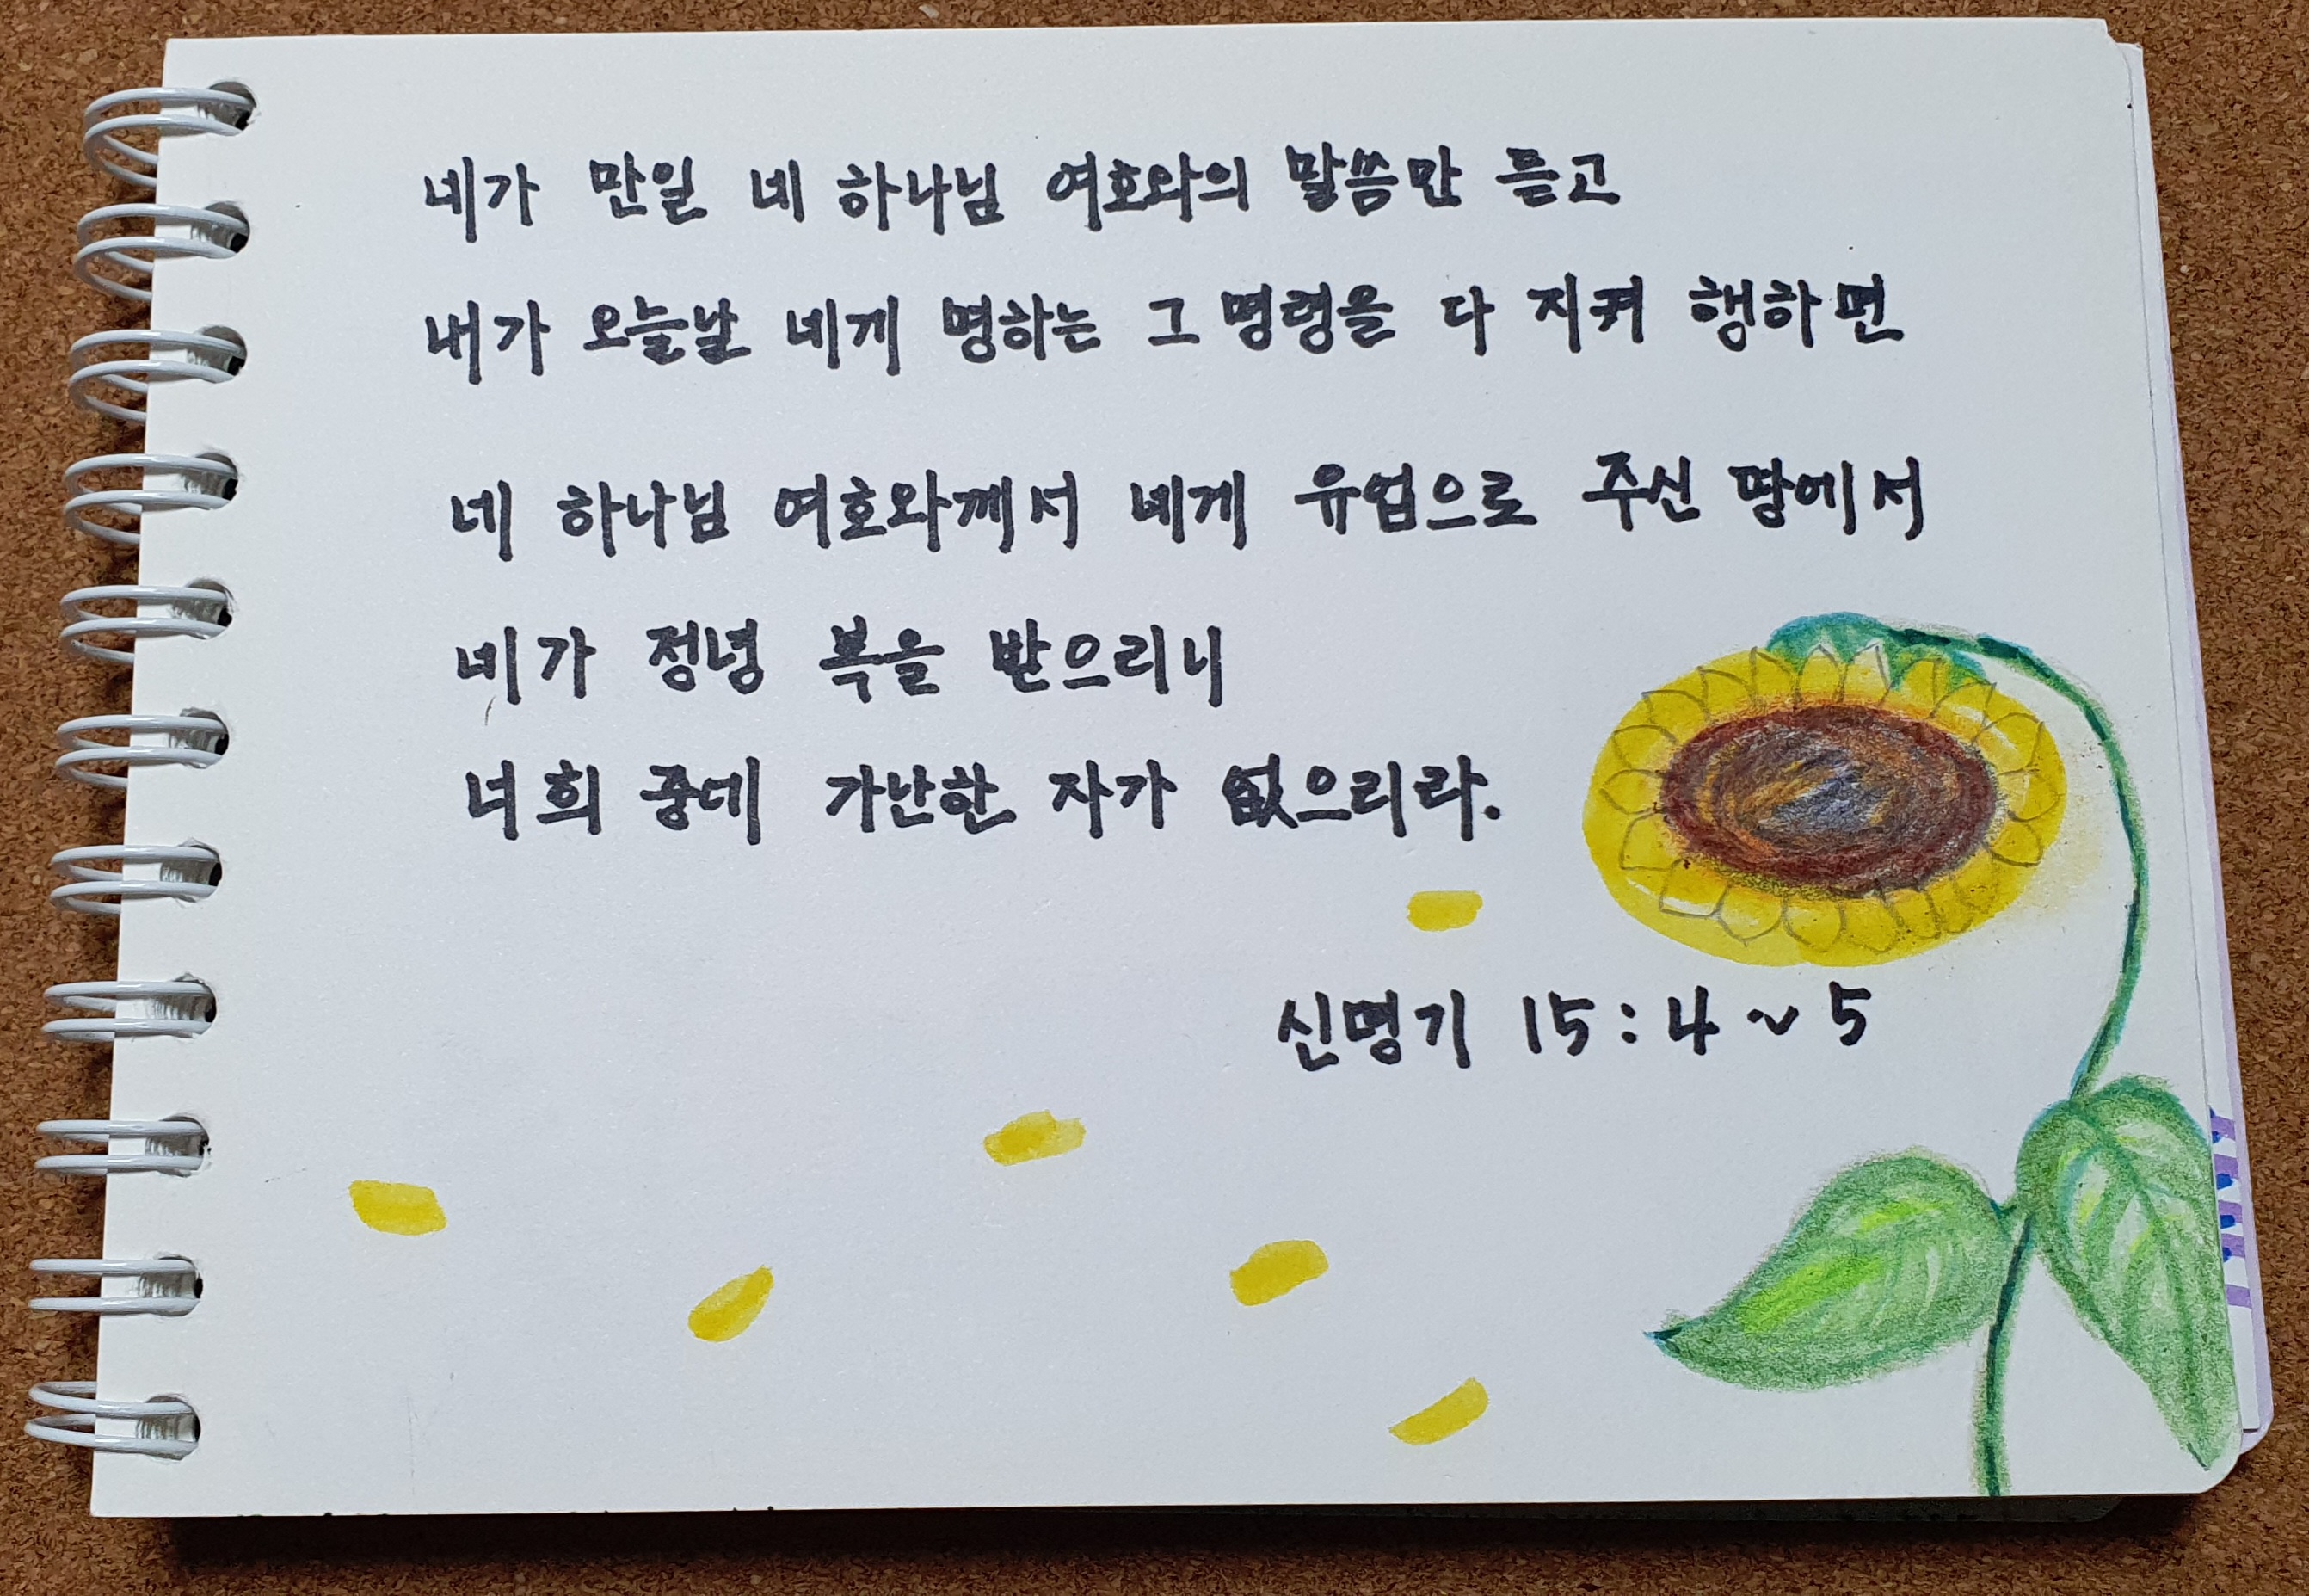 네가 만일 네 하나님 여호와의 말씀만 듣고
내가 오늘날 네게 명하는 그 명령을 다 지켜 행하면
네 하나님 여호와께서 네게 유업으로 주신 땅에서
네가 정녕 복을 받으리니
너희 중데 가난한 자가 없으리라.
신명기 15:4~5